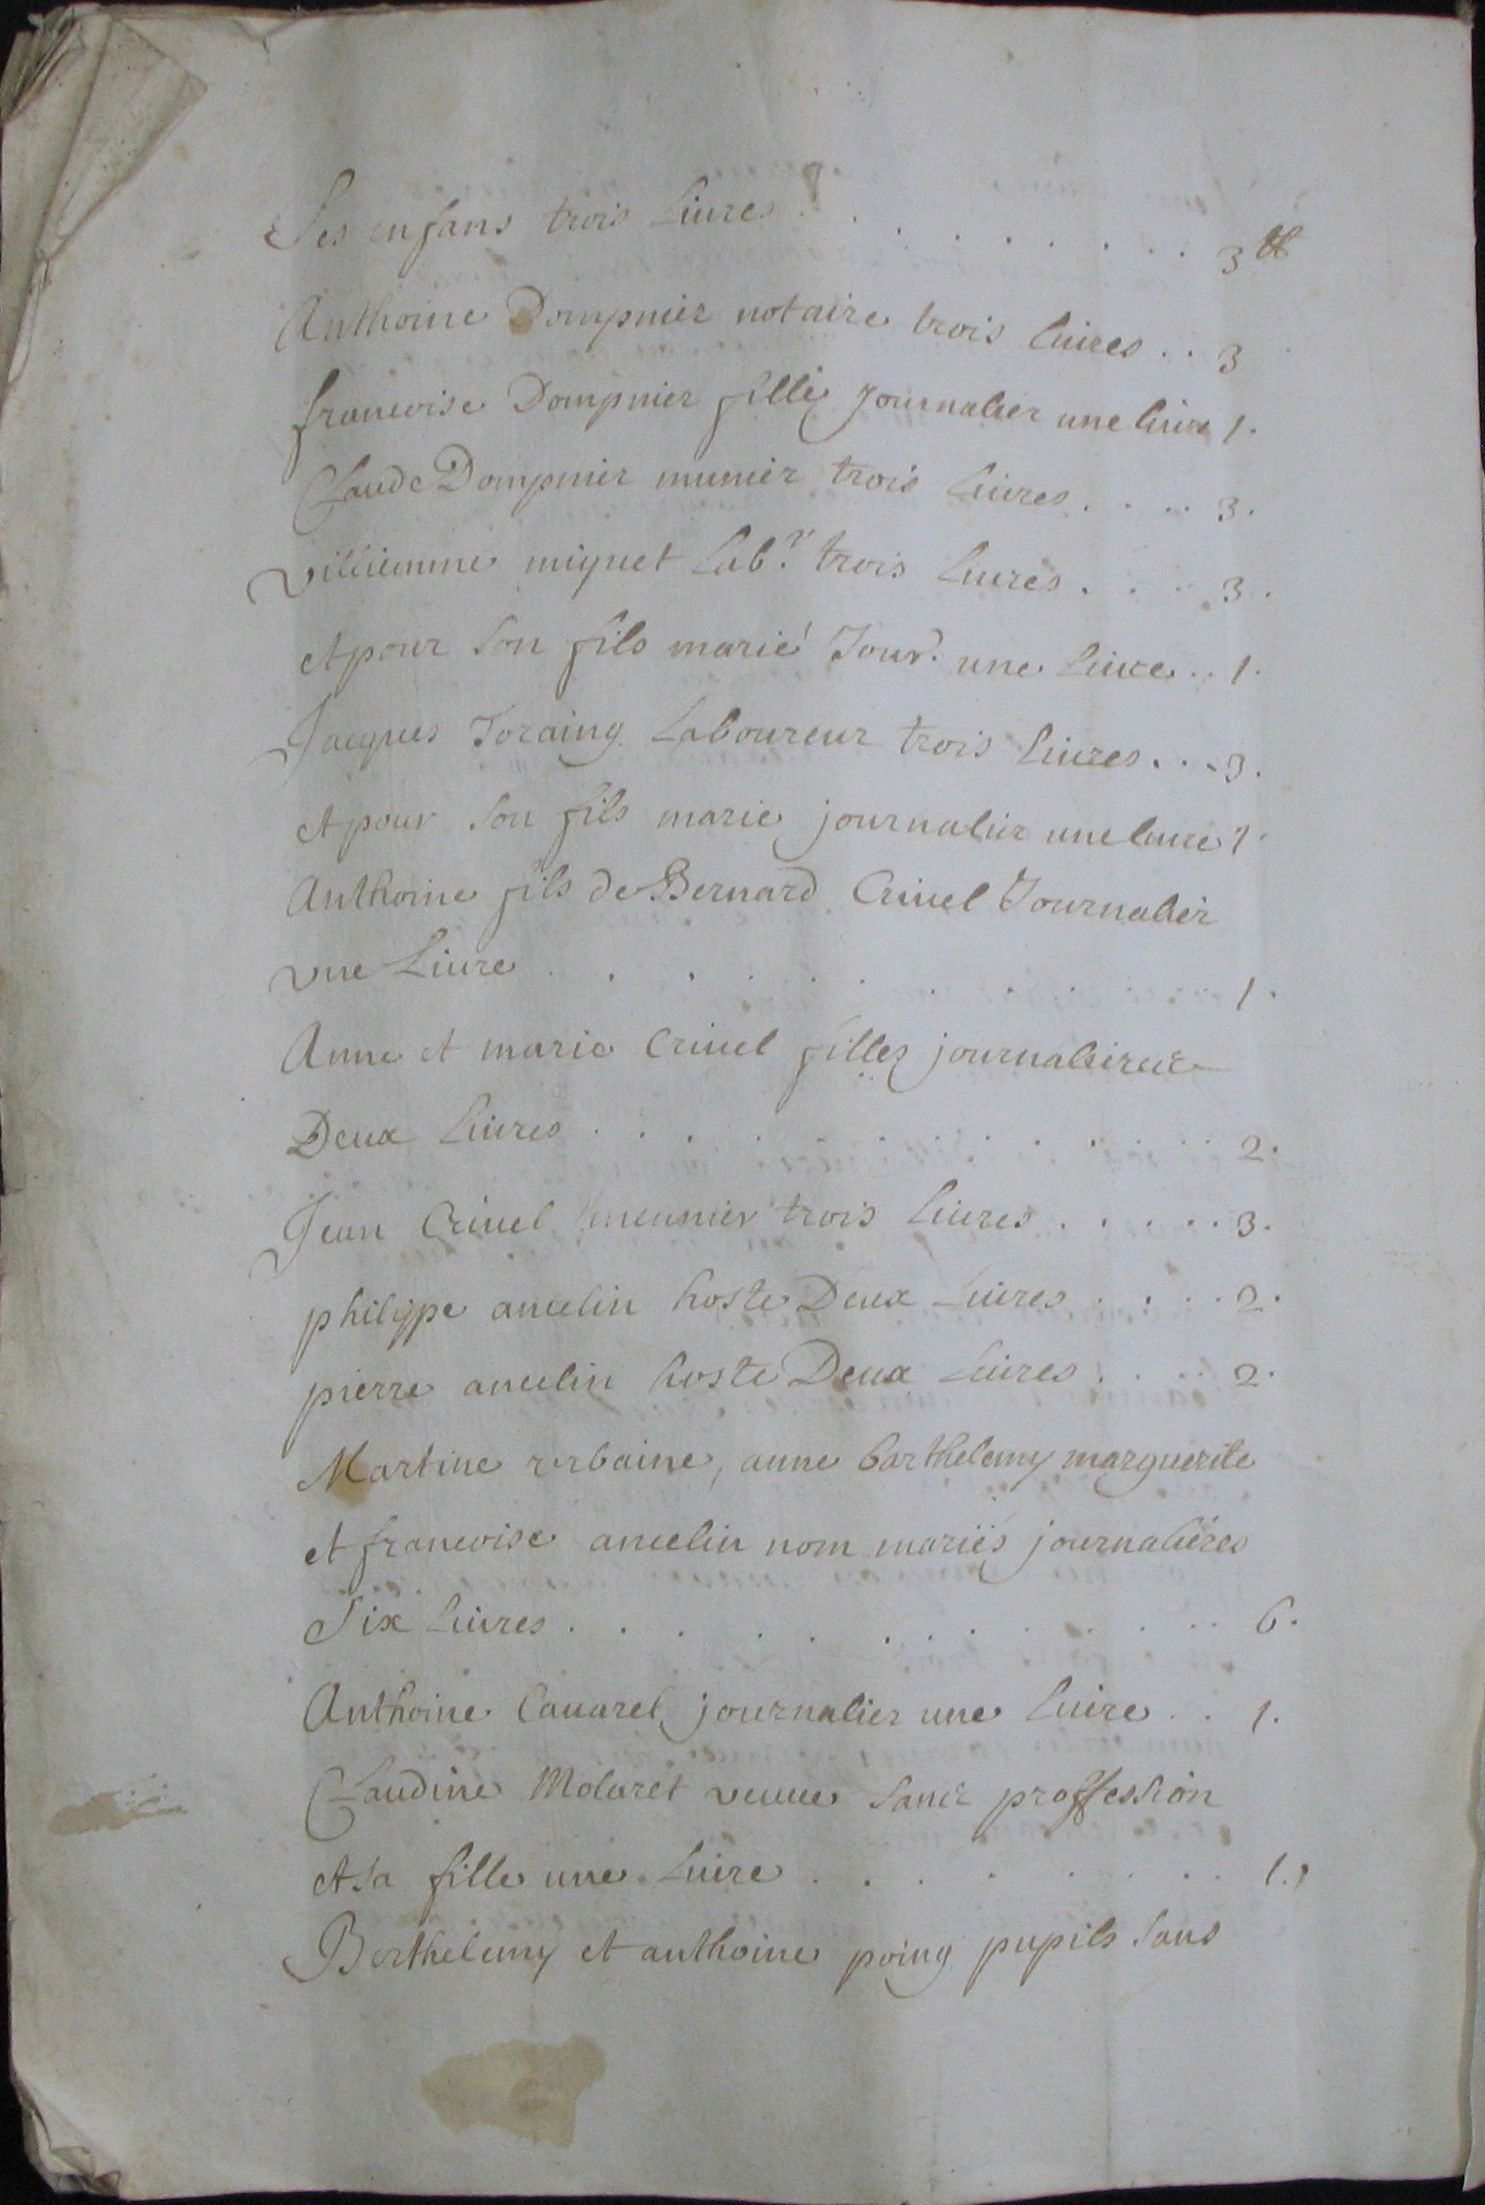 Ses enfans trois Livres . . . . . . . . 3 ₶
Anthoine Dompnier notaire trois livres . . 3
francoise Dompnier fille Journalier une livre 1.
Claude Dompnier munier trois livres . . . . 3.
villiemme miquet Lab.r trois Livres . . . . 3.
et pour Son fils marié Jour.r une Livre . . 1.
Jacques Toraing Laboureur trois livres . . . 3.
et pour Son fils marie journalier une livre 1.
Anthoine fils de Bernard Crinel Journalier
vne Livre . . . . . . . . . . . 1.
Anne et marie Crinel filles journalieres
Deux Livres . . . . . . . . . . . 2.
Jean Crinel meunier trois livres . . . . . 3.
philippe ancelin hoste Deux Livres . . . . 2.
pierre ancelin hoste Deux Livres . . . . 2.
Martine vrbaine, anne barthelemy marguerite
et francoise ancelin nom mariés journalieres
Six Livres . . . . . . . . . . . 6.
Anthoine Cavarel journalier une Livre . . 1.
Claudine Molaret veuve Sans proffession
et Sa fille une Livre . . . . . . . . 1.
Berthelemy et anthoine poing pupils Sans